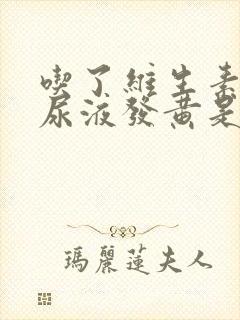 喫了維生素
尿液發黃是
瑪麗蓮夫人